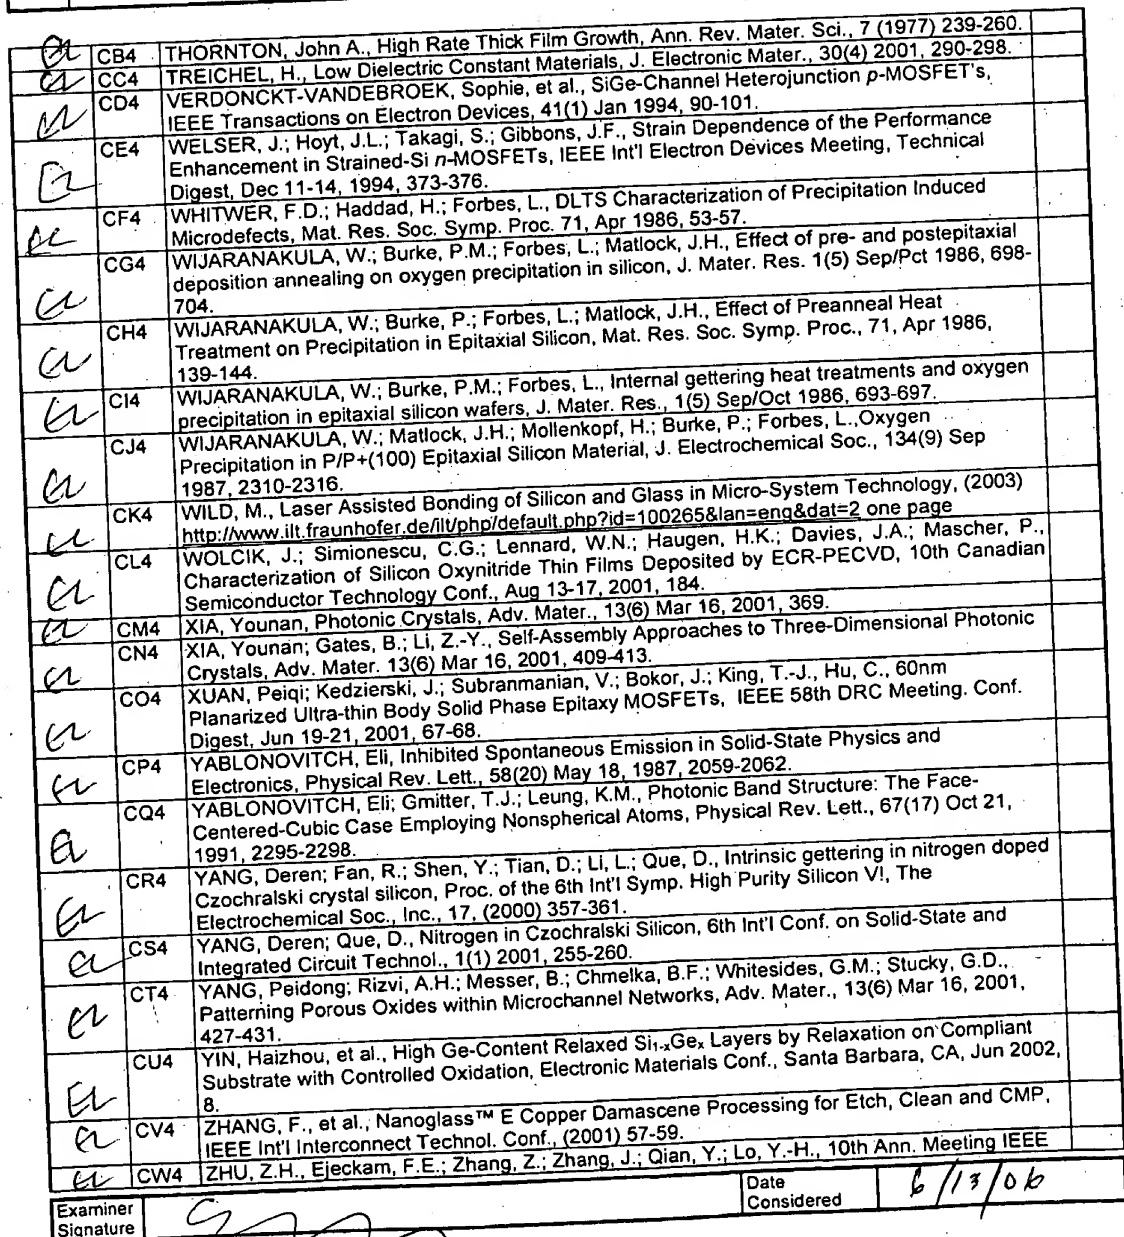 CB4 THORNTON, John A., High Rate Thick Film Growth, Ann. Rev. Mater. Sci., 7 (1977) 239-260.
CC4 TREICHEL, H., Low Dielectric Constant Materials, J. Electronic Mater., 30(4) 2001, 290-298.
CD4 VERDONCKT-VANDEBROEK, Sophie, et al., SiGe-Channel Heterojunction p-MOSFET's,
IEEE Transactions on Electron Devices, 41(1) Jan 1994, 90-101.
CE4 WELSER, J.; Hoyt, J.L.; Takagi, S.; Gibbons, J.F., Strain Dependence of the Performance
Enhancement in Strained-Si n-MOSFETs, IEEE Int'l Electron Devices Meeting, Technical
Digest, Dec 11-14, 1994, 373-376.
CF4 WHITWER, F.D.; Haddad, H.; Forbes, L., DLTS Characterization of Precipitation Induced
Microdefects, Mat. Res. Soc. Symp. Proc. 71, Apr 1986, 53-57.
CG4 WIJARANAKULA, W.; Burke, P.M.; Forbes, L.; Matlock, J.H., Effect of pre- and postepitaxial
deposition annealing on oxygen precipitation in silicon, J. Mater. Res. 1(5) Sep/Pct 1986, 698-
704.
CH4 WIJARANAKULA, W.; Burke, P.; Forbes, L.; Matlock, J.H., Effect of Preanneal Heat
Treatment on Precipitation in Epitaxial Silicon, Mat. Res. Soc. Symp. Proc., 71, Apr 1986,
139-144.
CI4 WIJARANAKULA, W.; Burke, P.M.; Forbes, L., Internal gettering heat treatments and oxygen
precipitation in epitaxial silicon wafers, J. Mater. Res., 1(5) Sep/Oct 1986, 693-697.
CJ4 WIJARANAKULA, W.; Matlock, J.H.; Mollenkopf, H.; Burke, P.; Forbes, L.,Oxygen
Precipitation in P/P+(100) Epitaxial Silicon Material, J. Electrochemical Soc., 134(9) Sep
1987, 2310-2316.
CK4 WILD, M., Laser Assisted Bonding of Silicon and Glass in Micro-System Technology, (2003)
http://www.ilt.fraunhofer.de/ilt/php/default.php?id=100265&lan=eng&dat=2 one page
CL4 WOLCIK, J.; Simionescu, C.G.; Lennard, W.N.; Haugen, H.K.; Davies, J.A.; Mascher, P.,
Characterization of Silicon Oxynitride Thin Films Deposited by ECR-PECVD, 10th Canadian
Semiconductor Technology Conf., Aug 13-17, 2001, 184.
CM4 XIA, Younan, Photonic Crystals, Adv. Mater., 13(6) Mar 16, 2001, 369.
CN4 XIA, Younan; Gates, B.; Li, Z.-Y., Self-Assembly Approaches to Three-Dimensional Photonic
Crystals, Adv. Mater. 13(6) Mar 16, 2001, 409-413.
CO4 XUAN, Peiqi; Kedzierski, J.; Subranmanian, V.; Bokor, J.; King, T.-J., Hu, C., 60nm
Planarized Ultra-thin Body Solid Phase Epitaxy MOSFETs, IEEE 58th DRC Meeting. Conf.
Digest, Jun 19-21, 2001, 67-68.
CP4 YABLONOVITCH, Eli, Inhibited Spontaneous Emission in Solid-State Physics and
Electronics, Physical Rev. Lett., 58(20) May 18, 1987, 2059-2062.
CQ4 YABLONOVITCH, Eli; Gmitter, T.J.; Leung, K.M., Photonic Band Structure: The Face-
Centered-Cubic Case Employing Nonspherical Atoms, Physical Rev. Lett., 67(17) Oct 21,
1991, 2295-2298.
CR4 YANG, Deren; Fan, R.; Shen, Y.; Tian, D.; Li, L.; Que, D., Intrinsic gettering in nitrogen doped
Czochralski crystal silicon, Proc. of the 6th Int'l Symp. High Purity Silicon V!, The
Electrochemical Soc., Inc., 17, (2000) 357-361.
CS4 YANG, Deren; Que, D., Nitrogen in Czochralski Silicon, 6th Int'l Conf. on Solid-State and
Integrated Circuit Technol., 1(1) 2001, 255-260.
CT4 YANG, Peidong; Rizvi, A.H.; Messer, B.; Chmelka, B.F.; Whitesides, G.M.; Stucky, G.D.,
Patterning Porous Oxides within Microchannel Networks, Adv. Mater., 13(6) Mar 16, 2001,
427-431.
CU4 YIN, Haizhou, et al., High Ge-Content Relaxed Si1-xGex Layers by Relaxation on Compliant
Substrate with Controlled Oxidation, Electronic Materials Conf., Santa Barbara, CA, Jun 2002,
8.
CV4 ZHANG, F., et al., Nanoglass™ E Copper Damascene Processing for Etch, Clean and CMP,
IEEE Int'l Interconnect Technol. Conf., (2001) 57-59.
CW4 ZHU, Z.H., Ejeckam, F.E.; Zhang, Z.; Zhang, J.; Qian, Y.; Lo, Y.-H., 10th Ann. Meeting IEEE
Examiner Signature
Date Considered 6/13/06